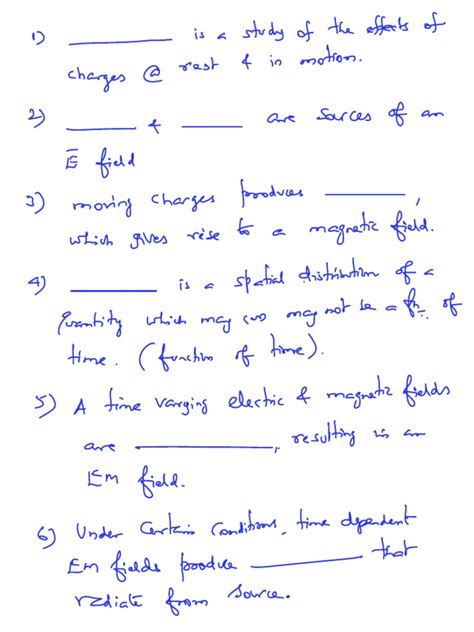 1) __________ is a study of the effects of
charges @ rest & in motion.
2) _______ & _______ are sources of an
E̅ field
3) moving charges produces ________,
which gives rise to a magnetic field.
4) _________ is a spatial distribution of a
quantity which may (or) may not be a fn. of
time. (function of time).
5) A time varying electric & magnetic fields
are ____________, resulting in an
EM field.
6) Under Certain Conditions, time dependent
EM fields produce __________ that
radiate from source.